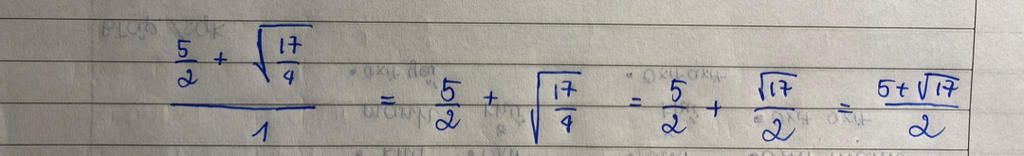 (5/2 + √(17/4))/1 = 5/2 + √(17/4) = 5/2 + √17/2 = (5+√17)/2